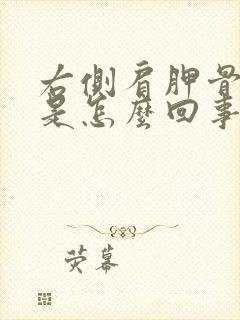 右側肩胛骨
是怎麼回事
荧幕